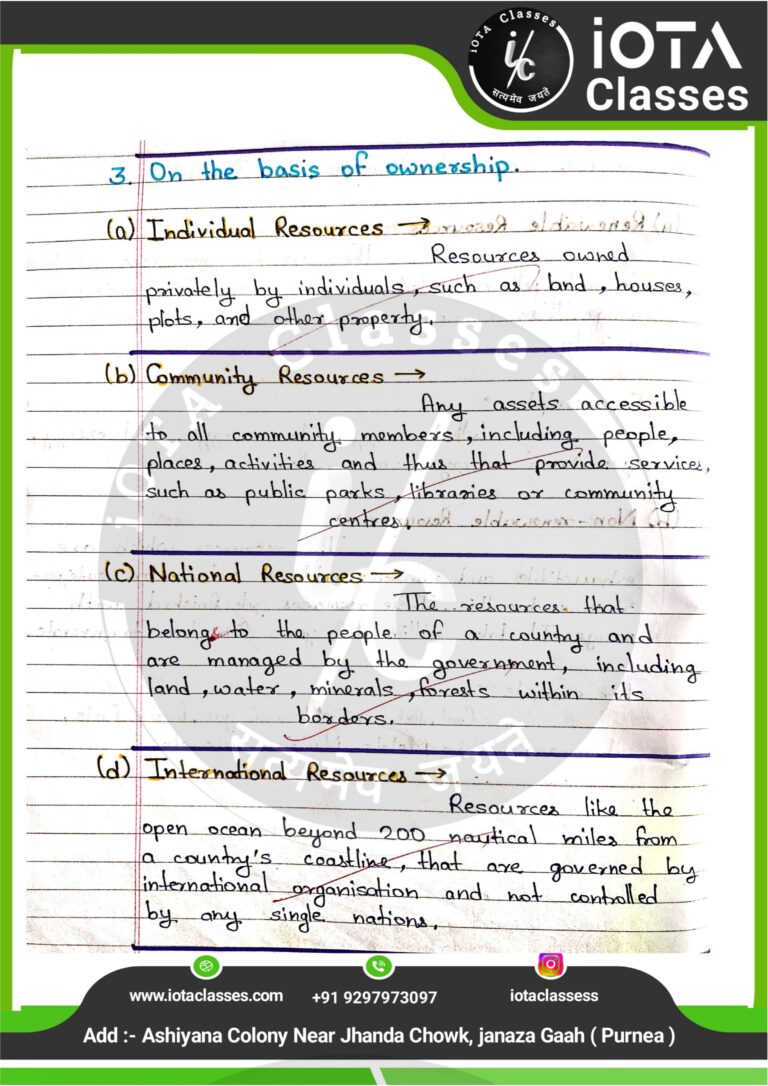 iOTA Classes
i/c
सत्यमेव जयते
iOTA
Classes
3. On the basis of ownership.
(a) Individual Resources →
Resources owned
privately by individuals, such as land, houses,
plots, and other property.
(b) Community Resources →
Any assets accessible
to all community members, including people,
places, activities and thus that provide services,
such as public parks, libraries or community
centres.
(c) National Resources →
The resources that
belongs to the people of a country and
are managed by the government, including
land, water, minerals, forests within its
borders.
(d) International Resources →
Resources like the
open ocean beyond 200 nautical miles from
a country's coastline, that are governed by
international organisation and not controlled
by any single nations.
iOTA Classes
i/c
सत्यमेव जयते
www.iotaclasses.com
+91 9297973097
iotaclassess
Add :- Ashiyana Colony Near Jhanda Chowk, janaza Gaah ( Purnea )